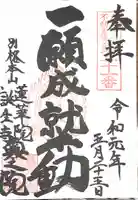 奉拝
令和元年
五月二十三日
一願成就不動
別格本山
蓮華院
誕生寺奥之院